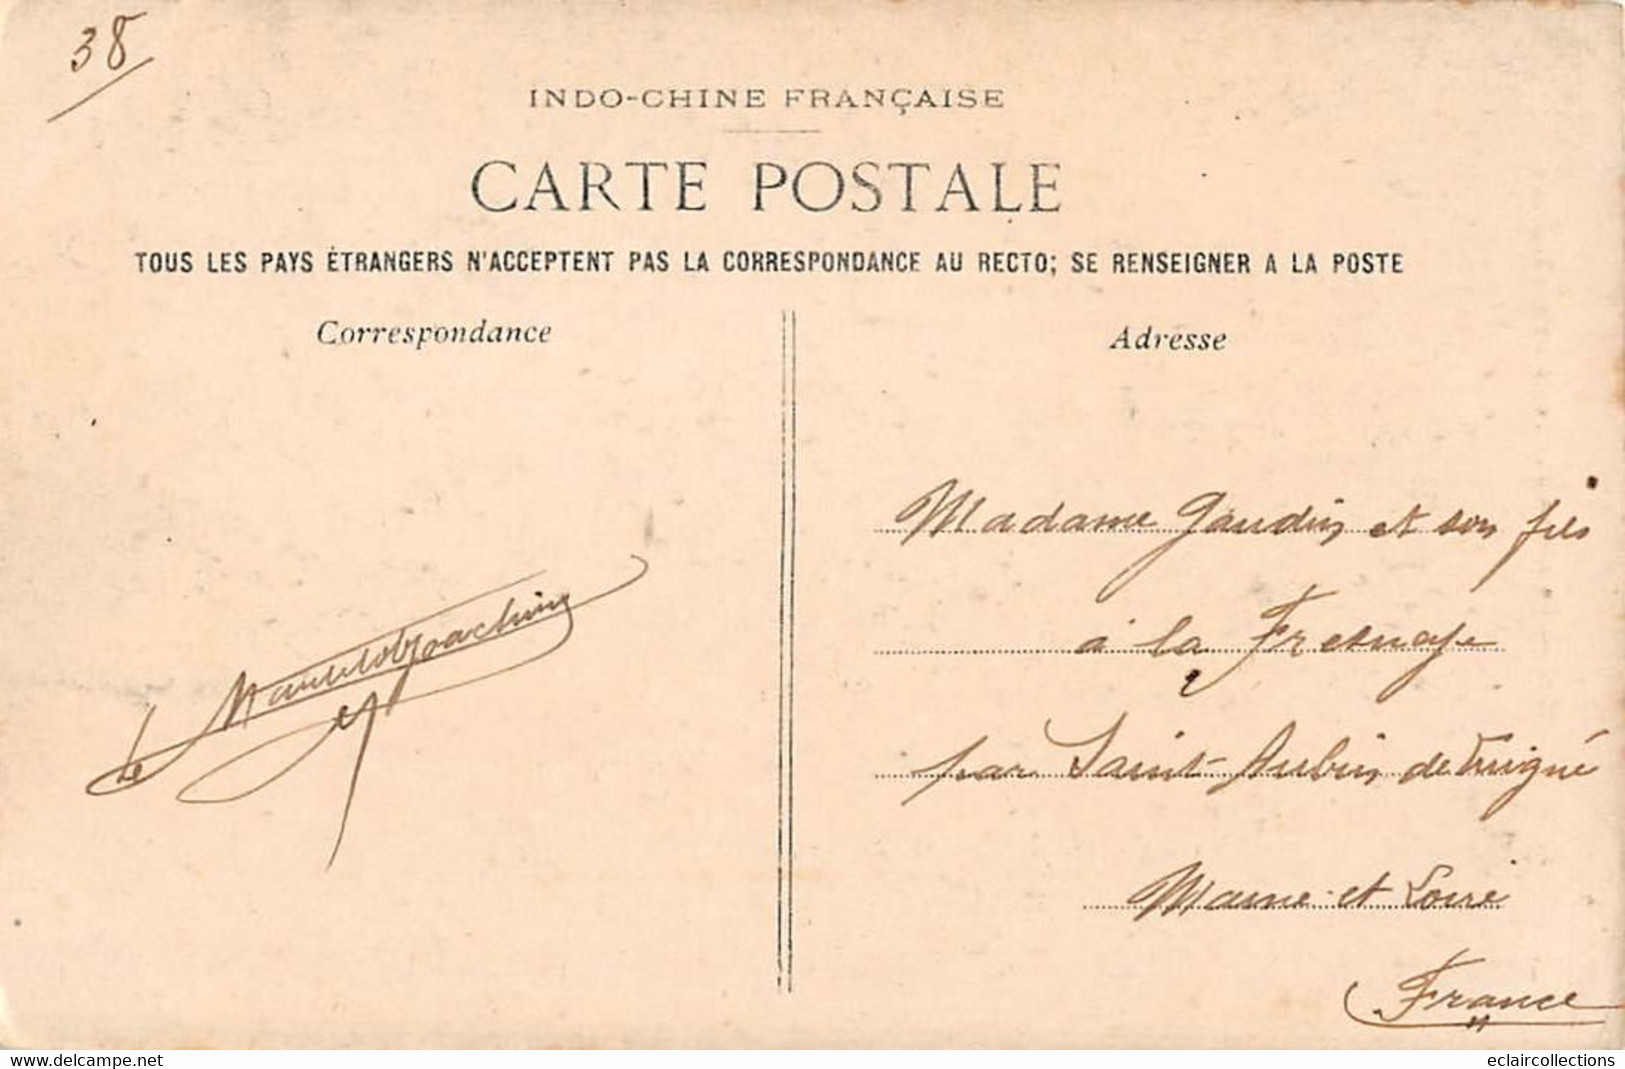 38
INDO-CHINE FRANÇAISE
CARTE POSTALE
TOUS LES PAYS ÉTRANGERS N'ACCEPTENT PAS LA CORRESPONDANCE AU RECTO; SE RENSEIGNER A LA POSTE
Correspondance
Adresse
Madame Gaudin et son fils
à la Fresnaye
par Saint-Aubin de Luigné
Maine et Loire
France
delcampe.net
eclaircollections